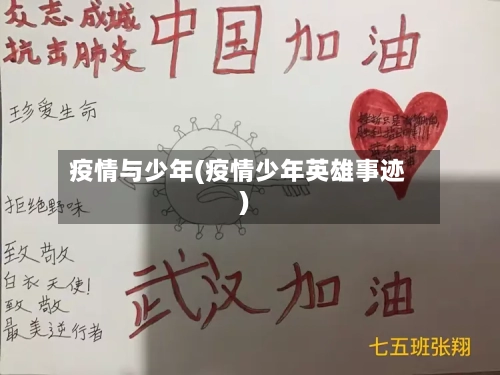 众志成城
抗击肺炎
中国加油
珍爱生命
疫情与少年(疫情少年英雄事迹
)
拒绝野味
致敬
白衣天使!
致敬
最美逆行者
武汉加油
七五班张翔